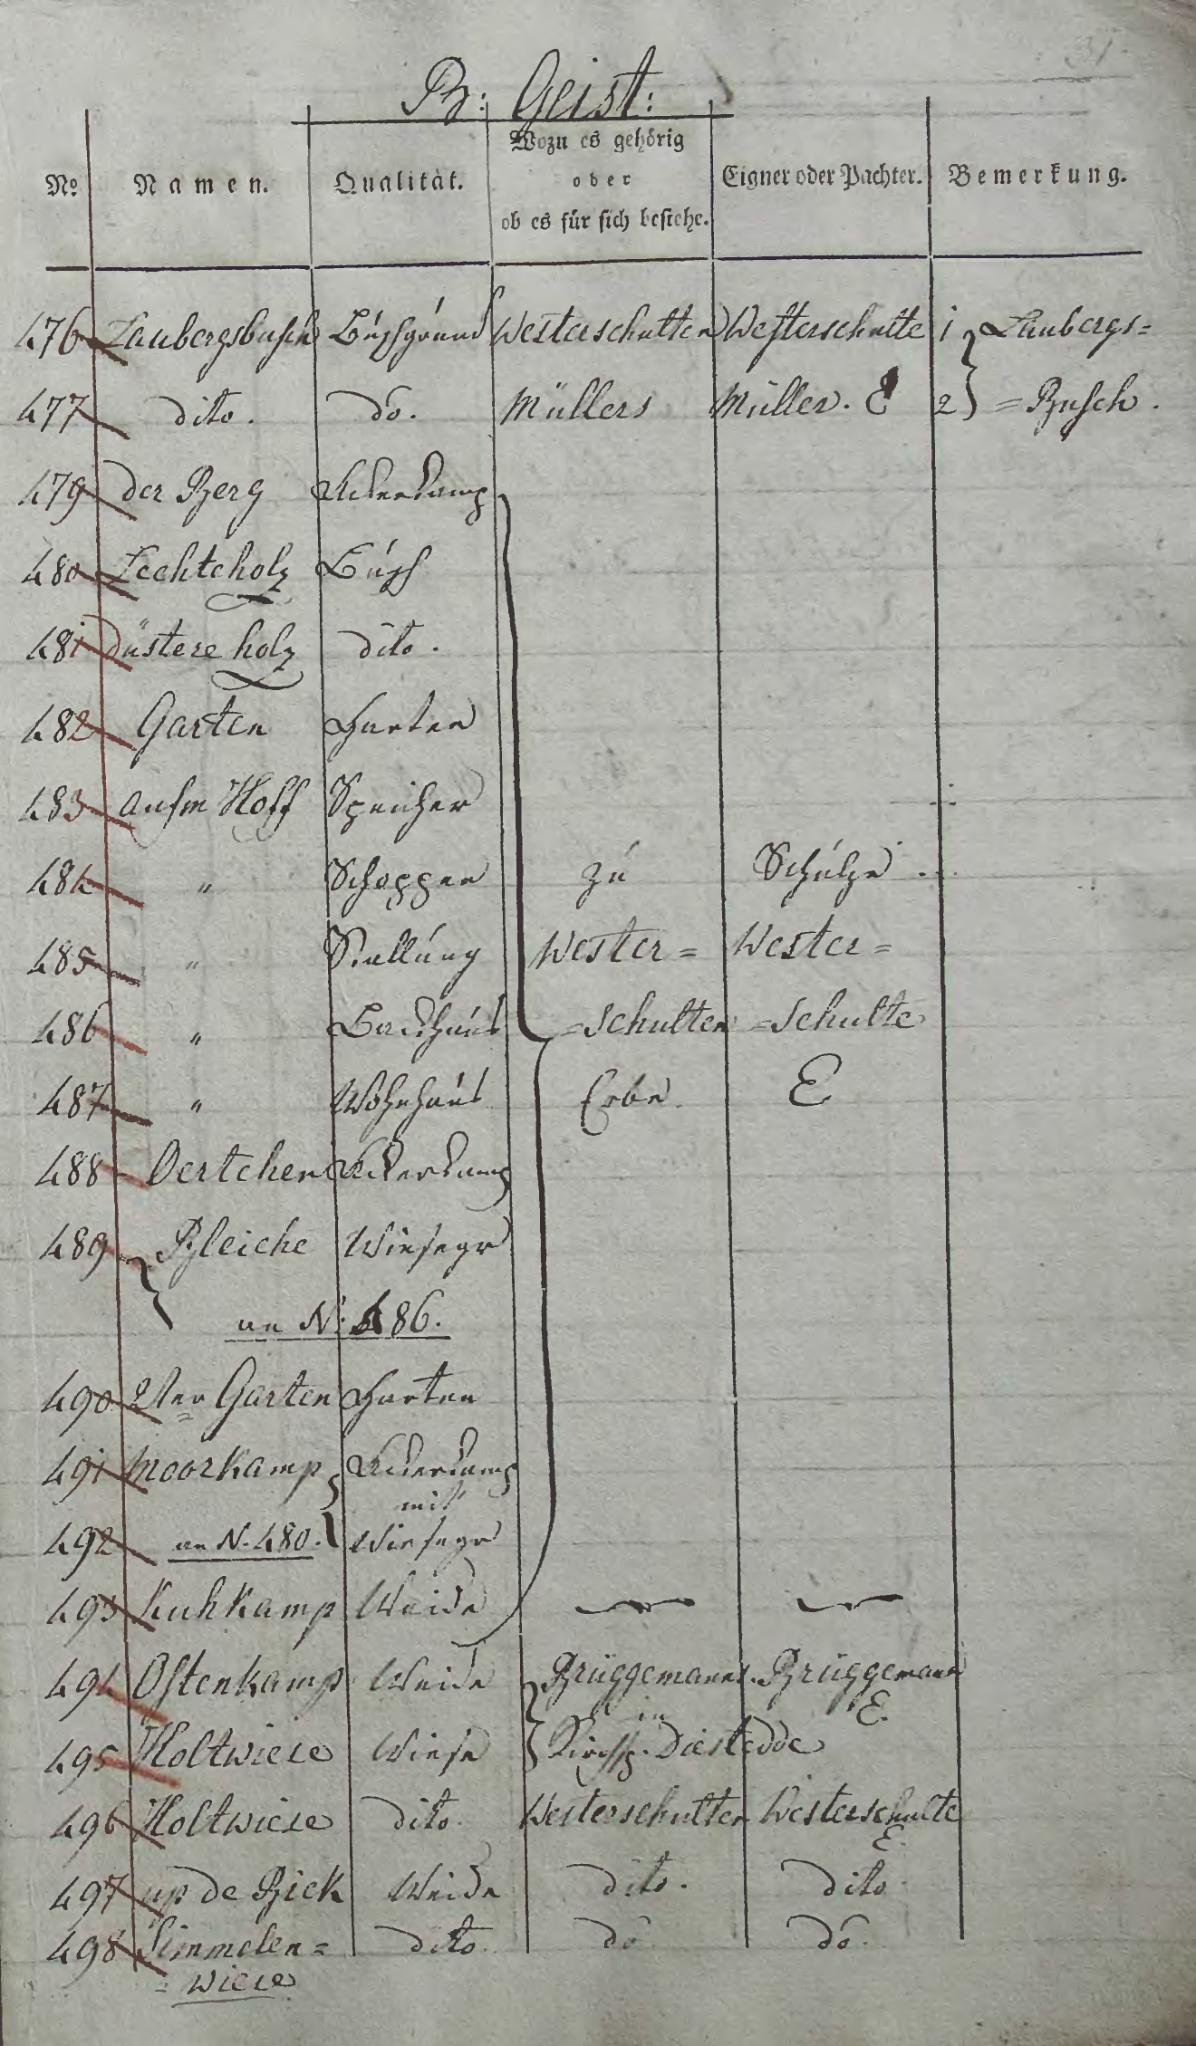 31
B: Geist:
No Namen. Qualität. Wozu es gehörig oder ob es für sich bestehe. Eigner oder Pächter. Bemerkung.
476 Laubergsbusch Buschgrund Westerschulten Westerschulte 1 } Laubergs=
477 dito. do. Müllers Müller. E 2 } =Busch.
479 der Berg Ackerkamp
480 Lechteholz Busch
481 Düstere holz dito.
482 Garten Garten
483 aufm Hoff Speicher
484 " Schoppen zu Schulze
485 " Stallung Wester= Wester=
486 " Backhaus =schulten =schulte
487 " Wohnhaus Erbe E
488 Oertchen Ackerkamp
489 Bleiche Wiesegr
an N: 486.
490 2ter Garten Garten
491 Moorkamp Ackerkamp
mit
492 an N. 480. Wiesegr
493 Kuhkamp Weide
494 Ostenkamp Weide Brüggemanns Brüggemann
in E.
495 Holtwiese Wiese Kirchsp. Diestedde
496 Holtwiese dito. Westerschulten Westerschulte
E.
497 up de Biek Weide dito. dito
498 Simmelen= dito. do do.
=wiese